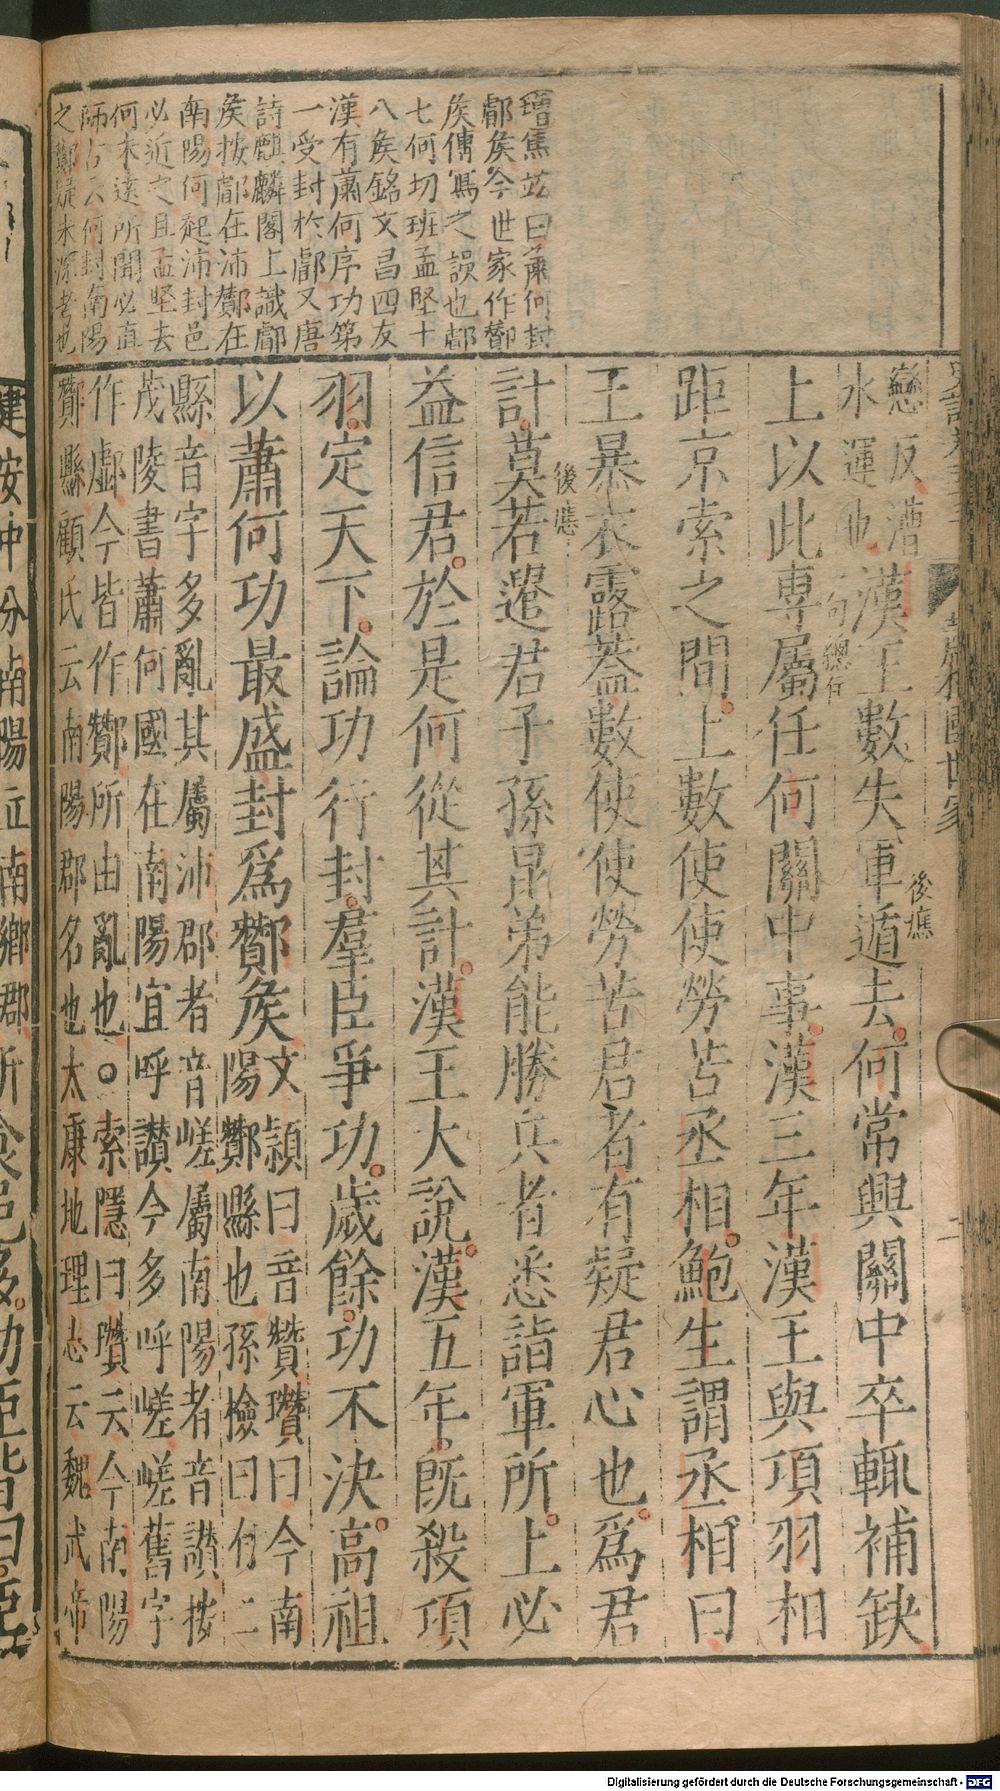 增焦竑曰蕭何封
酇矦今世家作酇
矦傳寫之誤也酇
七何切班孟堅十
八矦銘文昌四友
漢有蕭何序功第
一受封於酇又唐
詩麒麟閣上識酇
矦按酇在沛酇在
南陽何起沛封邑
必近之且孟堅去
何未遠所聞必真
師古云何封南陽
之酇疑未深考也
戀反漕
水運也
漢王數失軍遁去何常興關中卒輒補缺
後應
上以此專屬任何關中事漢三年漢王與項羽相
句總
距京索之間上數使使勞苦丞相鮑生謂丞相曰
王暴衣露蓋數使使勞苦君者有疑君心也爲君
計莫若遣君子孫昆弟能勝兵者悉詣軍所上必
後應
益信君於是何從其計漢王大說漢五年既殺項
羽定天下論功行封羣臣爭功歲餘功不決高祖
以蕭何功最盛封爲酇矦
文穎曰音贊瓚曰今南
陽酇縣也孫檢曰有二
縣音字多亂其屬沛郡者音嵯屬南陽者音讃按
茂陵書蕭何國在南陽宜呼讃今多呼嵯嵯舊字
作䣜今皆作酇所由亂也○索隱曰瓚云今南陽
酇縣顧氏云南陽郡名也太康地理志云魏武帝
建安中分南陽立南鄉郡
所食邑多功臣皆曰臣
Digitalisierung gefördert durch die Deutsche Forschungsgemeinschaft - DFG